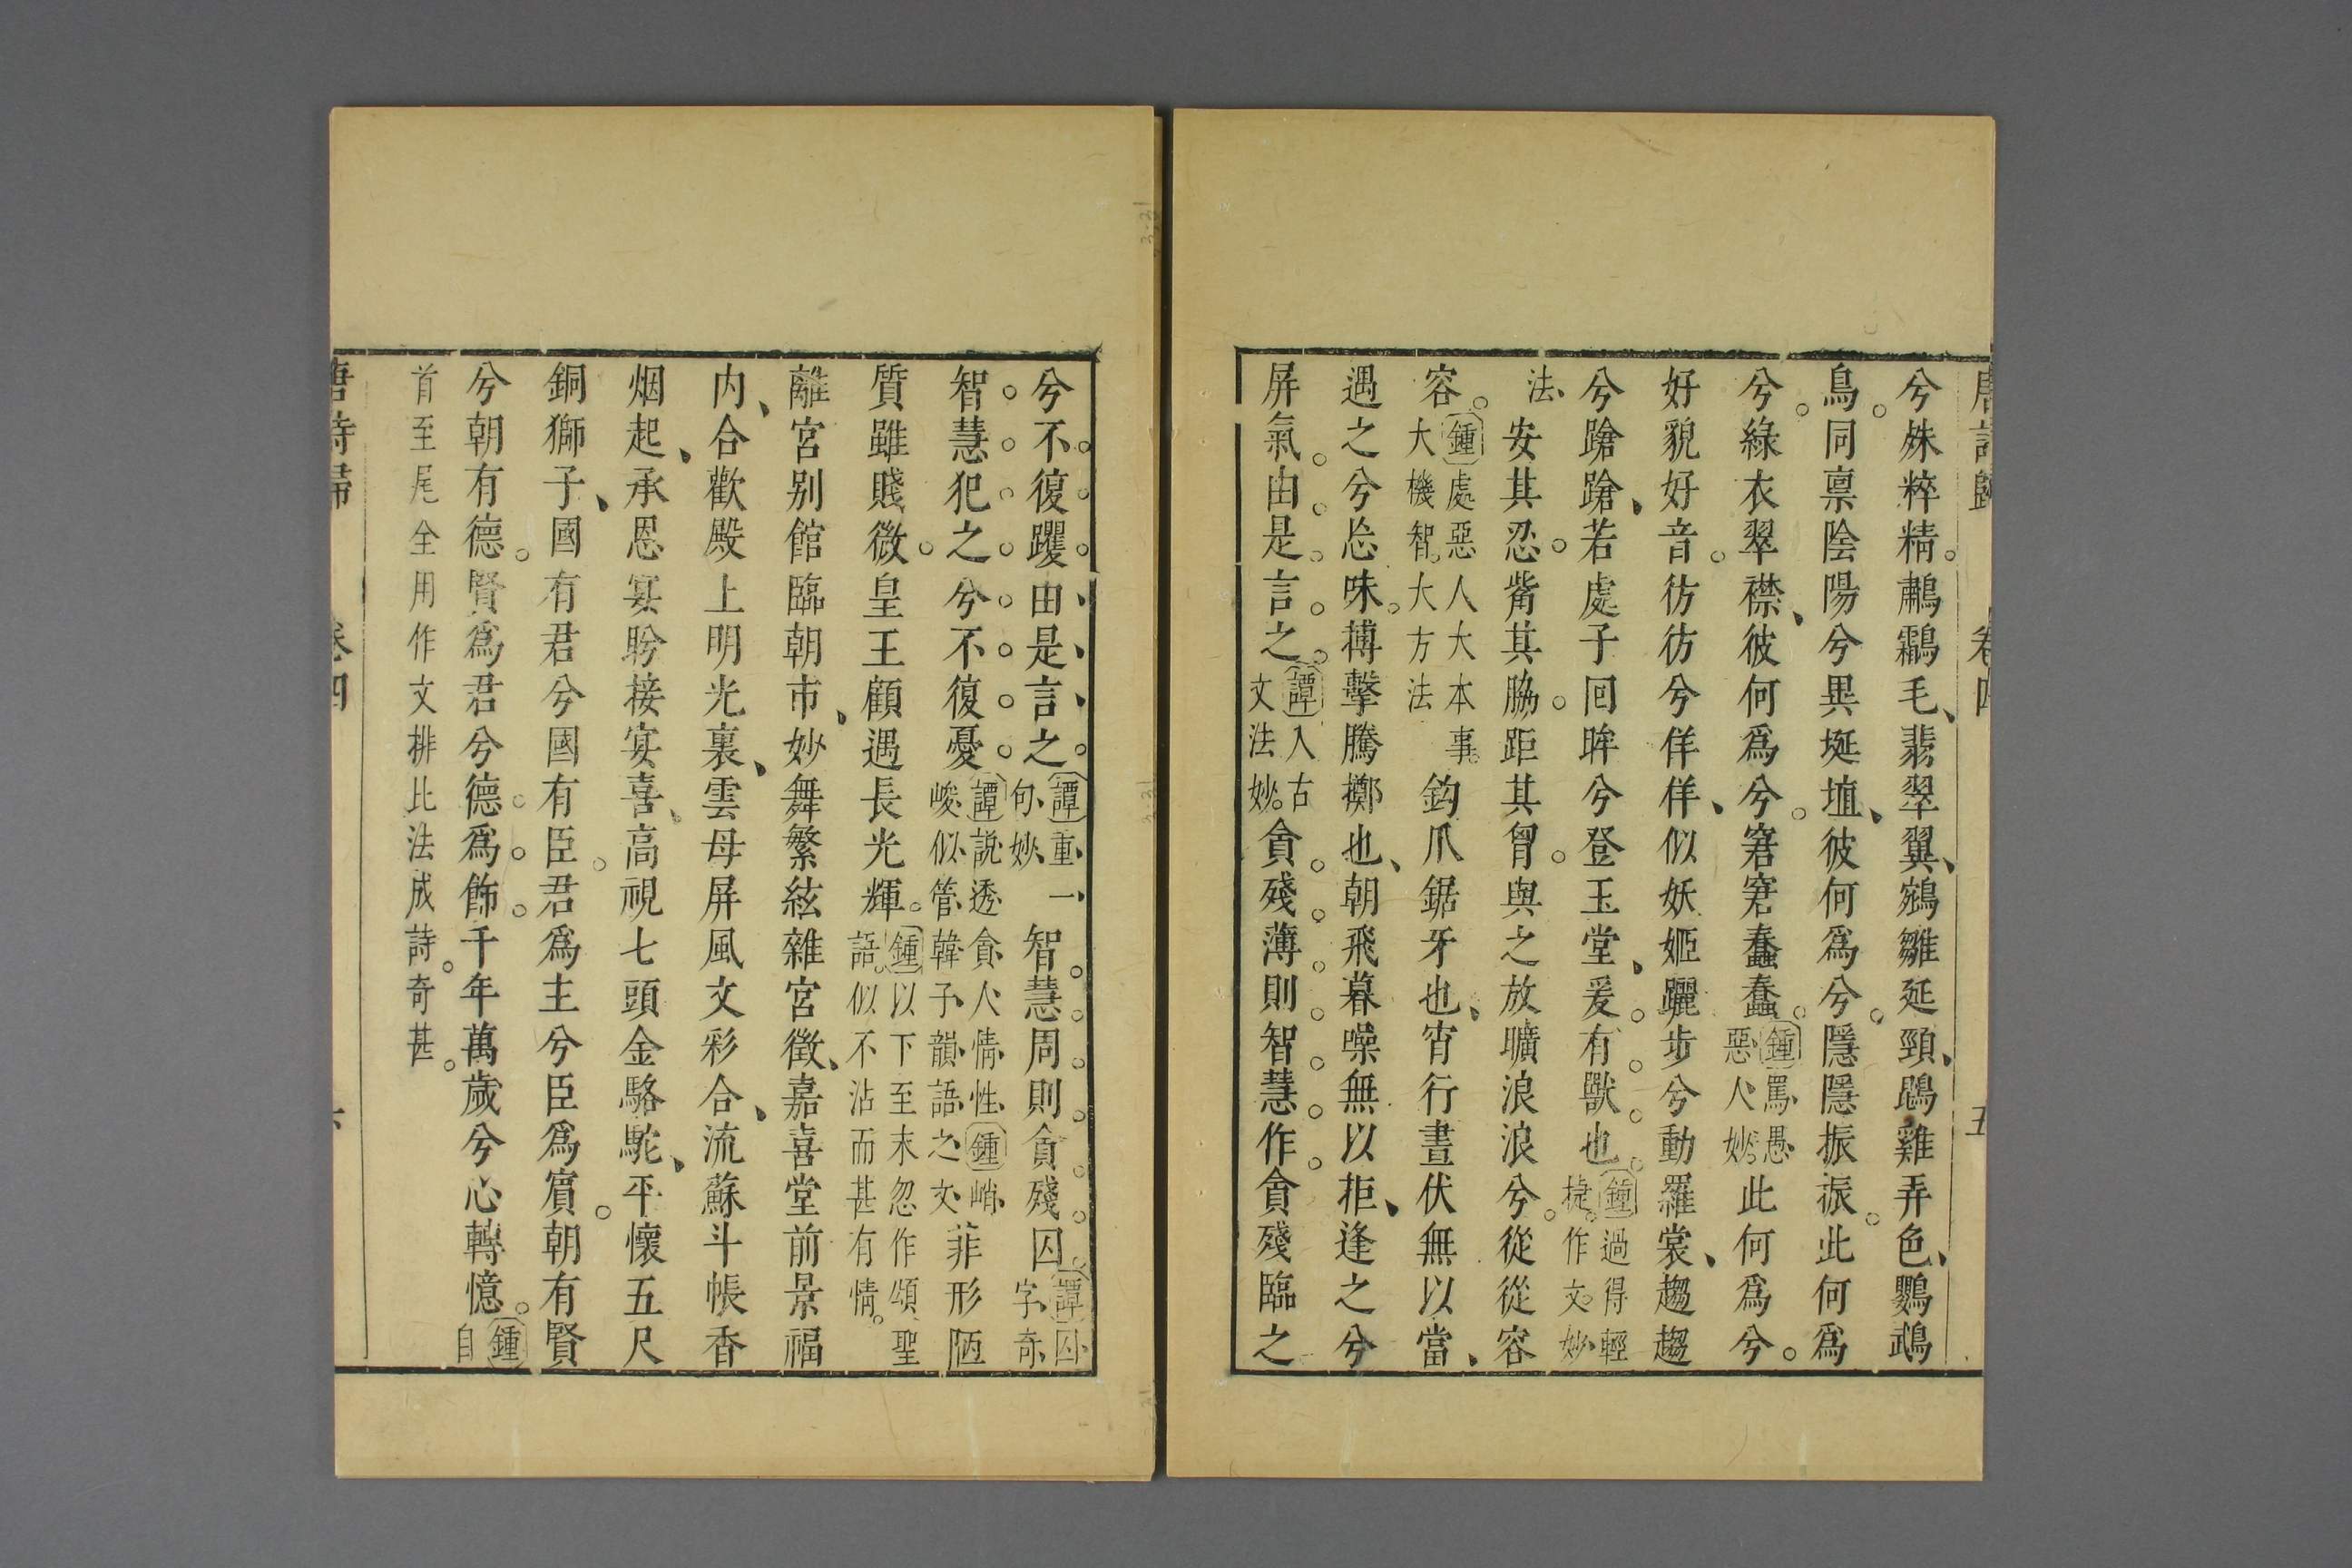 唐詩歸 卷四 五
兮姝粹精鷫鸘毛翡翠翼鵷雛延頸鶤雞弄色鸚鵡
鳥同禀陰陽兮異埏埴彼何爲兮隱隱振振此何爲
兮綠衣翠襟彼何爲兮窘窘蠢蠢鍾罵愚惡人妙此何爲兮
好貌好音彷彷兮佯佯似妖姬躧步兮動羅裳趨趨
兮蹌蹌若處子回眸兮登玉堂爰有獸也鍾過得輕捷作文妙
法安其忍觜其脇距其胷與之放曠浪浪兮從從容
容鍾處惡人大本事大機智大方法鈎爪鋸牙也宵行晝伏無以當
遇之兮忘味搏擊騰擲也朝飛暮噪無以拒逢之兮
屏氣由是言之譚入古文法妙貪殘薄則智慧作貪殘臨之
兮不復躩由是言之譚重一句妙智慧周則貪殘囚譚囚字奇
智慧犯之兮不復憂譚説透貪人情性鍾峭峻似管韓子韻語之文菲形陋
質雖賤微皇王顧遇長光輝鍾以下至末忽作頌聖語似不沾而甚有情
離宮别館臨朝市妙舞繁絃雜宮徵嘉喜堂前景福
内合歡殿上明光裏雲母屏風文彩合流蘇斗帳香
烟起承恩宴盻接宴喜高視七頭金駱駝平懷五尺
銅獅子國有君兮國有臣君爲主兮臣爲賓朝有賢
兮朝有德賢爲君兮德爲飾千年萬歲兮心轉憶鍾自
首至尾全用作文排比法成詩奇甚
唐詩歸 卷四